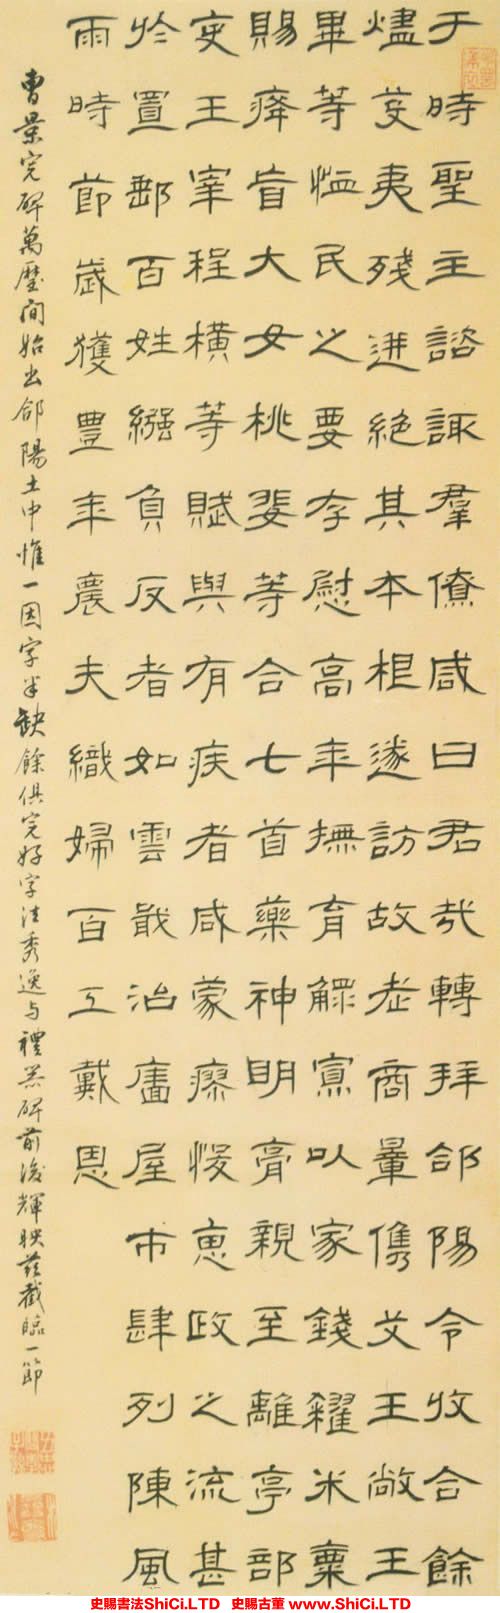 于時聖主諮諏羣僚咸曰君哉轉拜郃陽令收合餘
燼芟夷殘迸絶其本根遂訪故老商量儁艾王敞王
畢等恤民之要存慰高年撫育鰥寡以家錢糴米粟
賜癃盲大女桃斐等合七首藥神明膏親至離亭部
吏王宰程橫等賦與有疾者咸蒙瘳悛惠政之流甚
於置郵百姓繦負反者如雲戢治廧屋市肆列陳風
雨時節歲獲豐年農夫織婦百工戴恩
曹景完碑萬歷间始出郃陽土中惟一因字半缺餘俱完好字法秀逸与禮器碑前後輝映茲截臨一節
史賜書法ShiCi.LTD 史賜古董 www.ShiCi.LTD